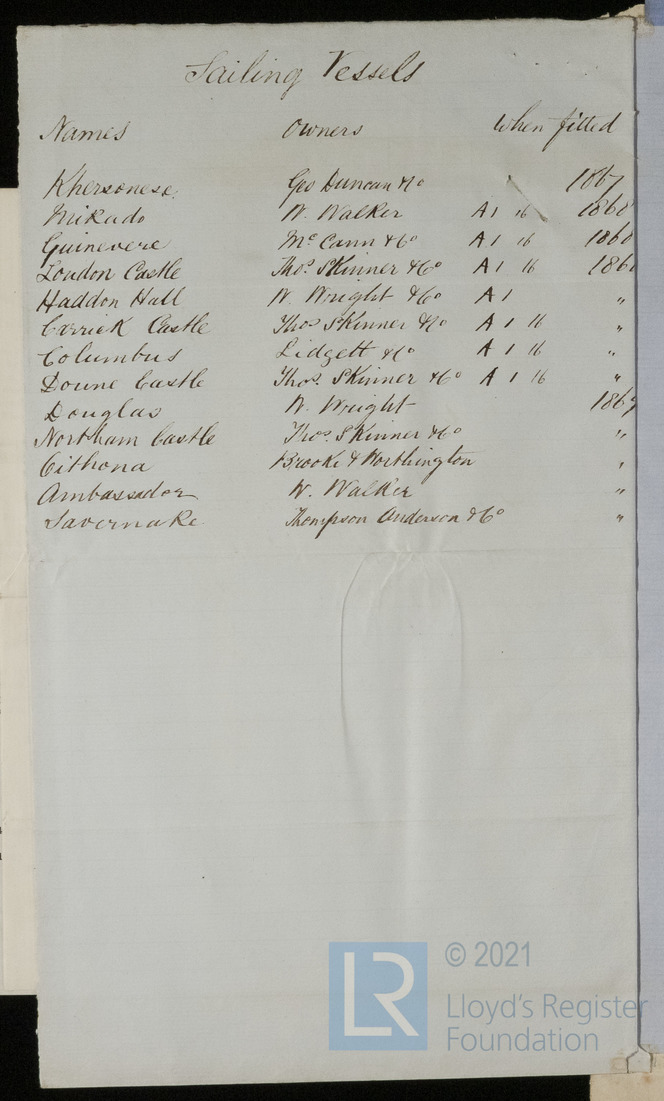 Sailing Vessels
Names Owners When fitted
Khersonese Geo Duncan & Co 1867
Mikado W. Walker A 1 16 1868
Guinevere McCann & Co A 1 16 1868
London Castle Thos Skinner & Co A 1 16 1868
Haddon Hall W. Wright & Co A 1 "
Corrick Castle Thos Skinner & Co A 1 16 "
Columbus Lidgett & Co A 1 16 "
Doune Castle Thos. Skinner & Co A 1 16 "
Douglas W. Wright 1869
Northam Castle Thos. Skinner & Co "
Cithona Brooke & Worthington "
Ambassador W. Walker "
Savernake Thompson Anderson & Co "
LR
© 2021
Lloyd's Register
Foundation